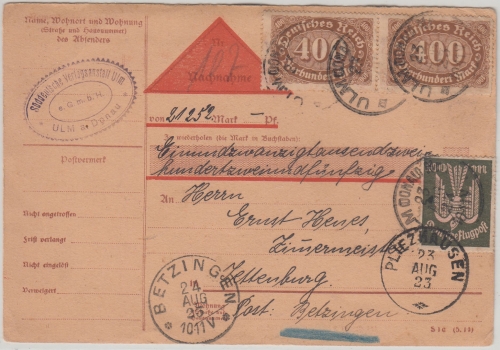 Name, Wohnort und Wohnung
(Straße und Hausnummer)
des Absenders
Süddeutsche Verlagsanstalt Ulm
G.m.b.H.
ULM a. Donau
Nachnahme
Deutsches Reich
400
Vierhundert Mark
Deutsches Reich
400
Vierhundert Mark
ULM (DONAU)
ULM (DONAU)
von 21252 Mark Pf.
Zu wiederholen (die Mark in Buchstaben):
Einundzwanzigtausendzwei-
hundertzweiundfünfzig
Postvermerk
An Herrn
Ernst Henes,
Zimmermeister
Jettenburg
Post: Betzingen
Nicht angetroffen
Frist verlangt
Nicht eingelöst
Verweigert
Flugpost
ULM (DONAU)
PLIEZHAUSEN
23
AUG
23
BETZINGEN
24
AUG
23
10-11 V